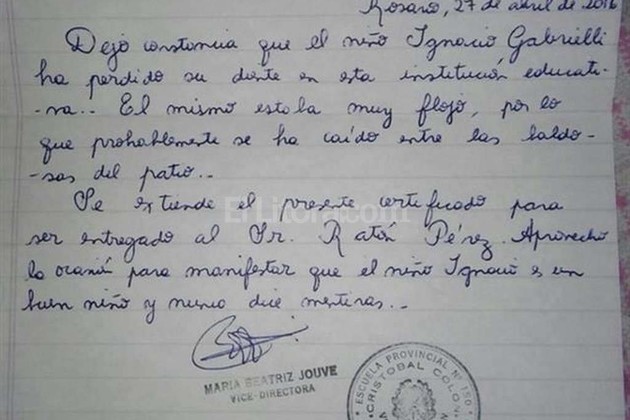 Rosario, 27 de abril de 2016
Dejo constancia que el niño Ignacio Gabrielli
ha perdido su diente en esta institución educati-
-va.. El mismo estaba muy flojo, por lo
que probablemente se ha caído entre las baldo-
-sas del patio..
Se extiende el presente certificado para
ser entregado al Sr. Ratón Pérez. Aprovecho
la ocasión para manifestar que el niño Ignacio es un
buen niño y nunca dice mentiras..
ElLitoral.com
MARIA BEATRIZ JOUVE
VICE-DIRECTORA
ESCUELA PROVINCIAL Nº 150
CRISTOBAL COLON